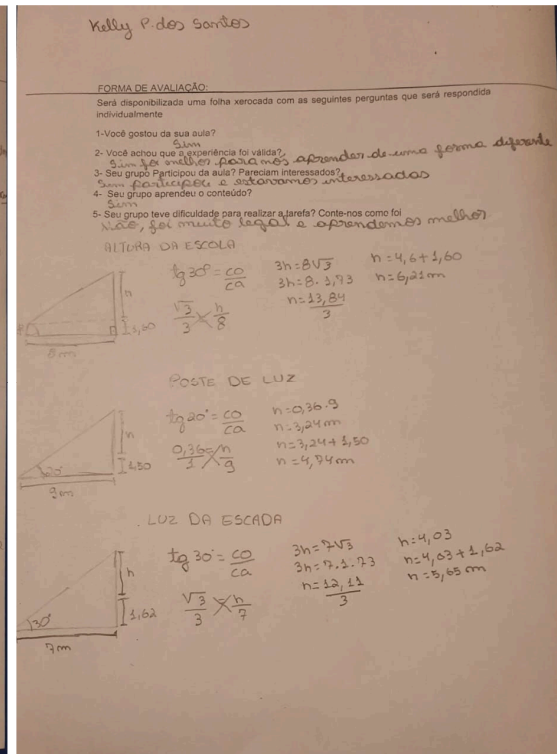 Kelly P. dos Santos
FORMA DE AVALIAÇÃO:
Será disponibilizada uma folha xerocada com as seguintes perguntas que será respondida
individualmente
1-Você gostou da sua aula?
Sim
2- Você achou que a experiência foi válida?
Sim foi melhor para nós aprender de uma forma diferente
3- Seu grupo Participou da aula? Pareciam interessados?
Sim participou e estavamos interessados
4- Seu grupo aprendeu o conteúdo?
Sim
5- Seu grupo teve dificuldade para realizar a tarefa? Conte-nos como foi
Não, foi muito legal e aprendemos melhor
ALTURA DA ESCOLA
tg 30° = co/ca
√3/3 h/8
3h = 8√3
3h = 8 . 1,73
h = 13,84/3
h = 4,6 + 1,60
h = 6,21 m
h
1,60
8m
POSTE DE LUZ
tg 20° = co/ca
0,36/1 h/9
h = 0,36 . 9
h = 3,24 m
h = 3,24 + 1,50
h = 4,74 m
h
1,50
20°
9m
LUZ DA ESCADA
tg 30° = co/ca
√3/3 h/7
3h = 7√3
3h = 7 . 1.73
h = 12,11/3
h = 4,03
h = 4,03 + 1,62
h = 5,65 m
h
1,62
30°
7m